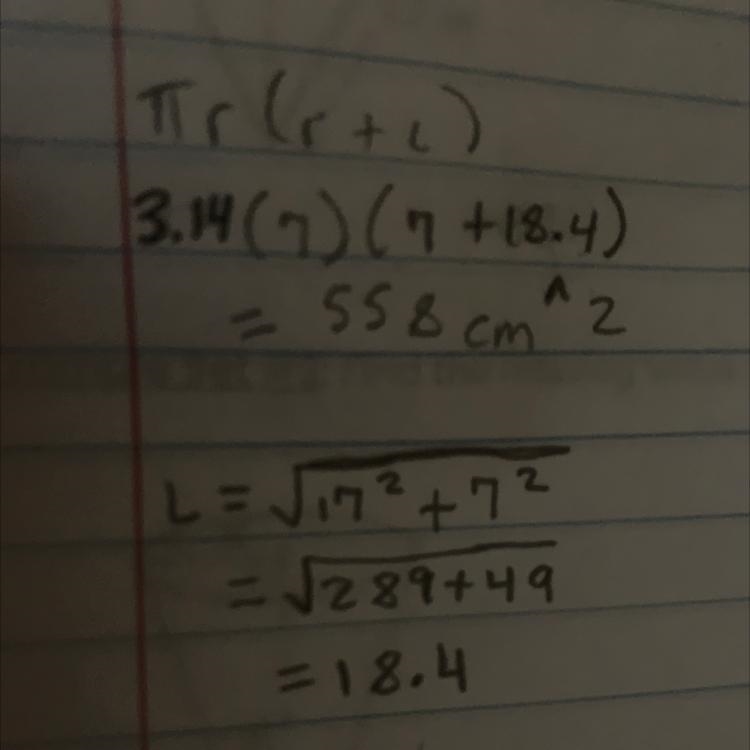 πr(r+L)
3.14(7)(7+18.4)
= 558 cm^2
L = √17² + 7²
= √289+49
= 18.4